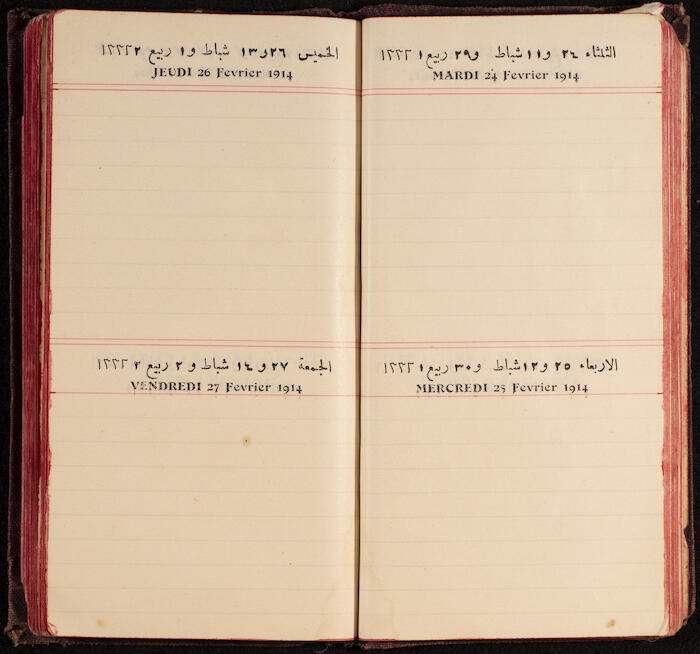 الثلثاء ٢٤ و١١ شباط و٢٩ ربيع ١ ١٣٣٢
MARDI 24 Fevrier 1914
الاربعاء ٢٥ و١٢ شباط و٣٠ ربيع ١ ١٣٣٢
MERCREDI 25 Fevrier 1914
الخميس ٢٦ و١٣ شباط و١ ربيع ٢ ١٣٣٢
JEUDI 26 Fevrier 1914
الجمعة ٢٧ و١٤ شباط و٢ ربيع ٢ ١٣٣٢
VENDREDI 27 Fevrier 1914